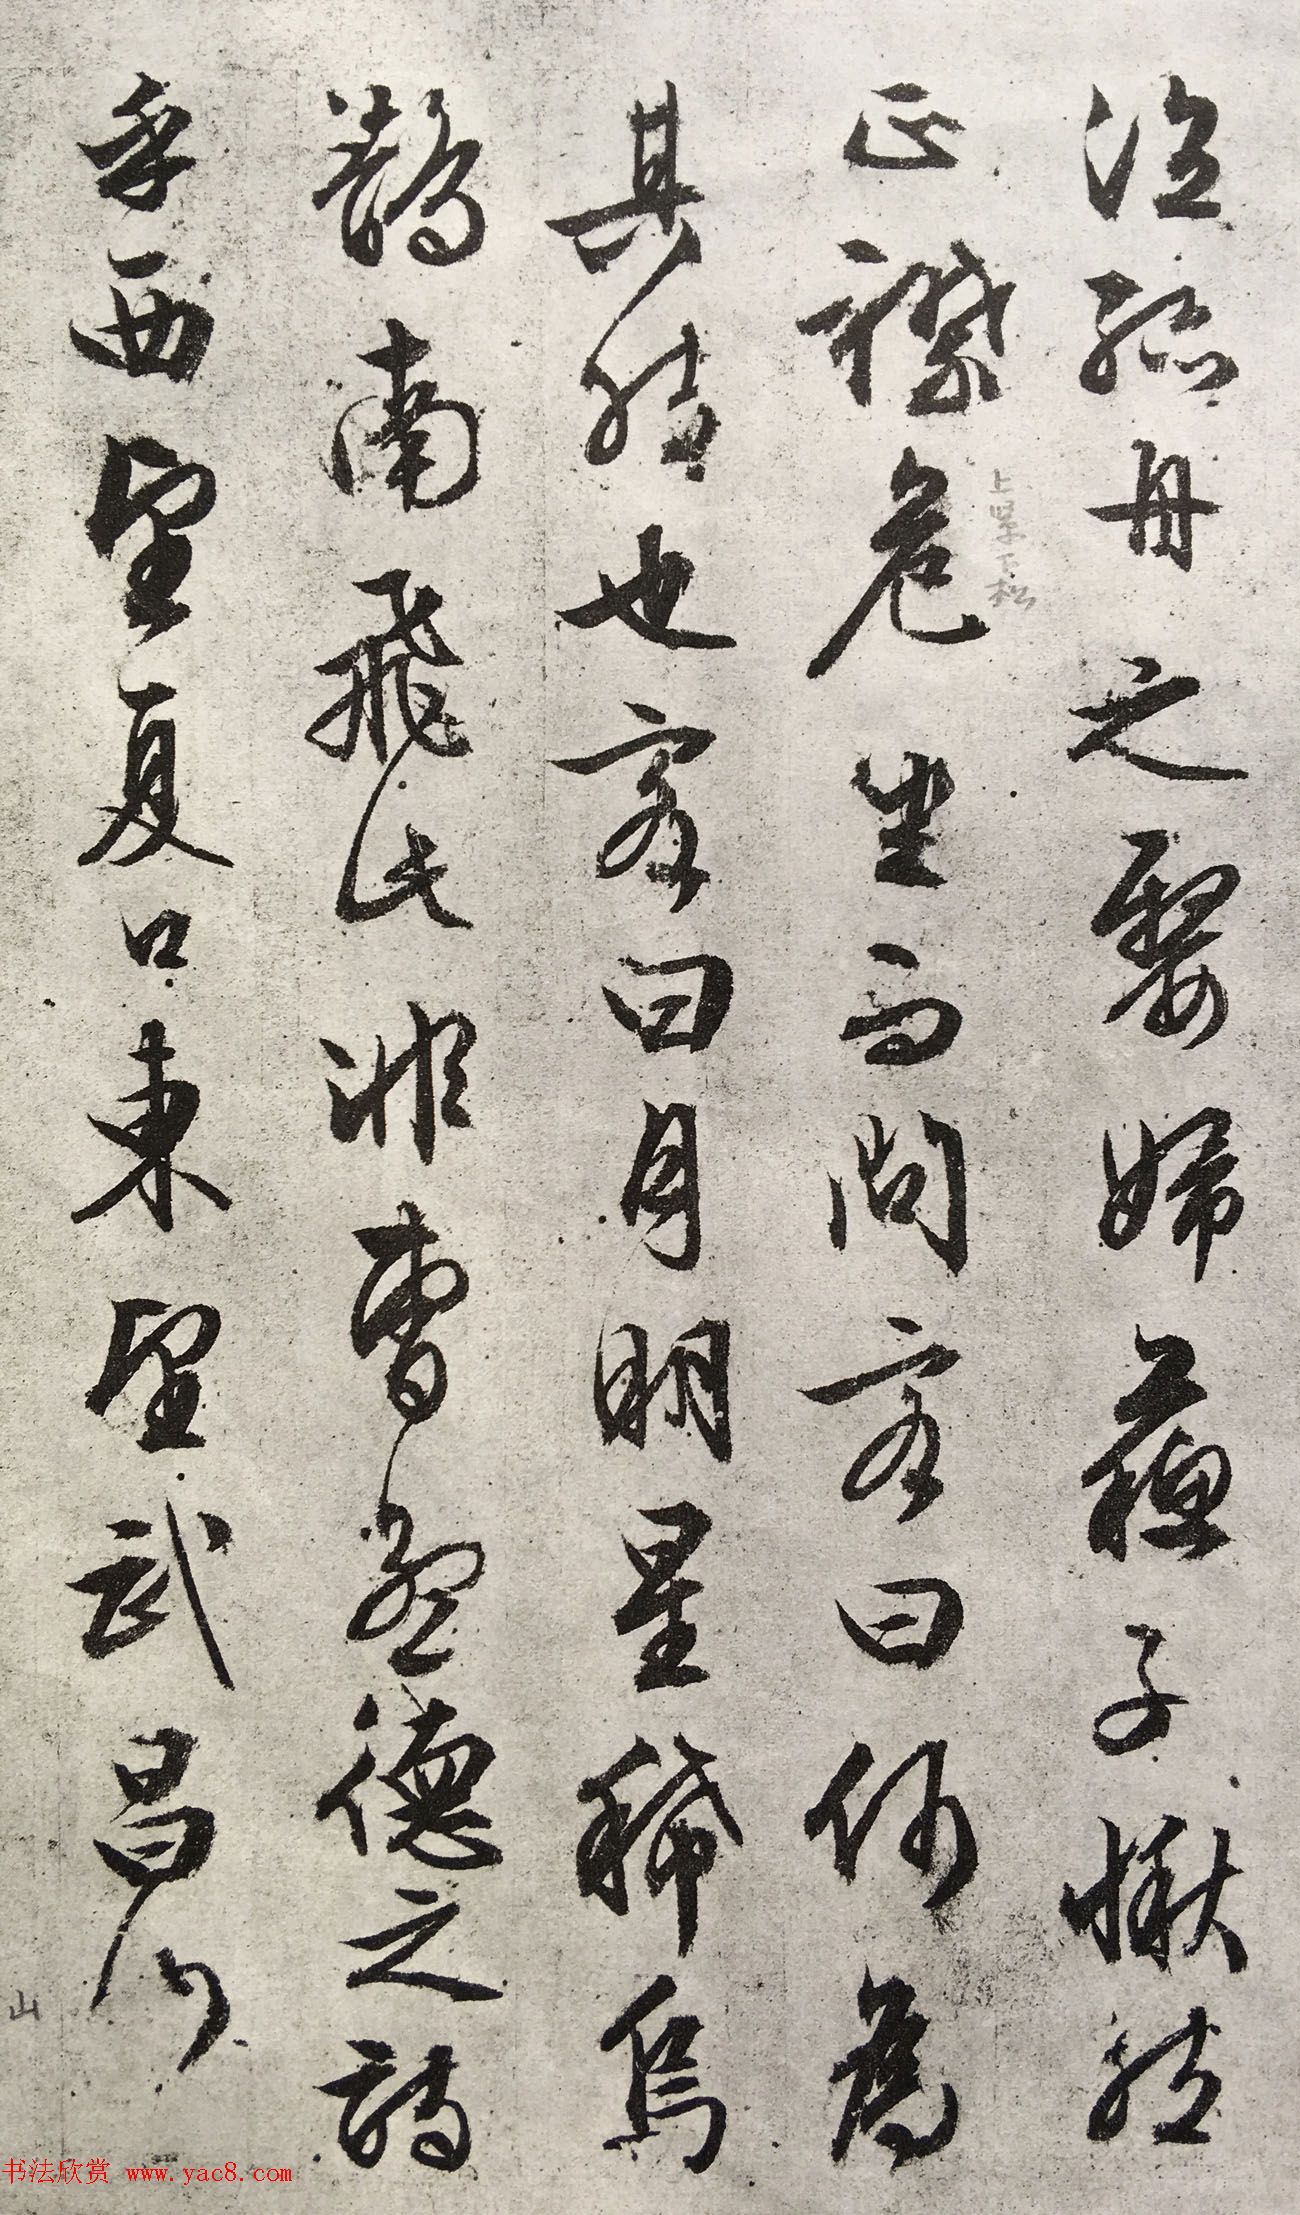 泣孤舟之嫠婦蘇子愀然
正襟危坐而問客曰何為
上紧下松
其然也客曰月明星稀烏
鵲南飛此非曹孟德之詩
乎西望夏口東望武昌山
山
书法欣赏 www.yac8.com